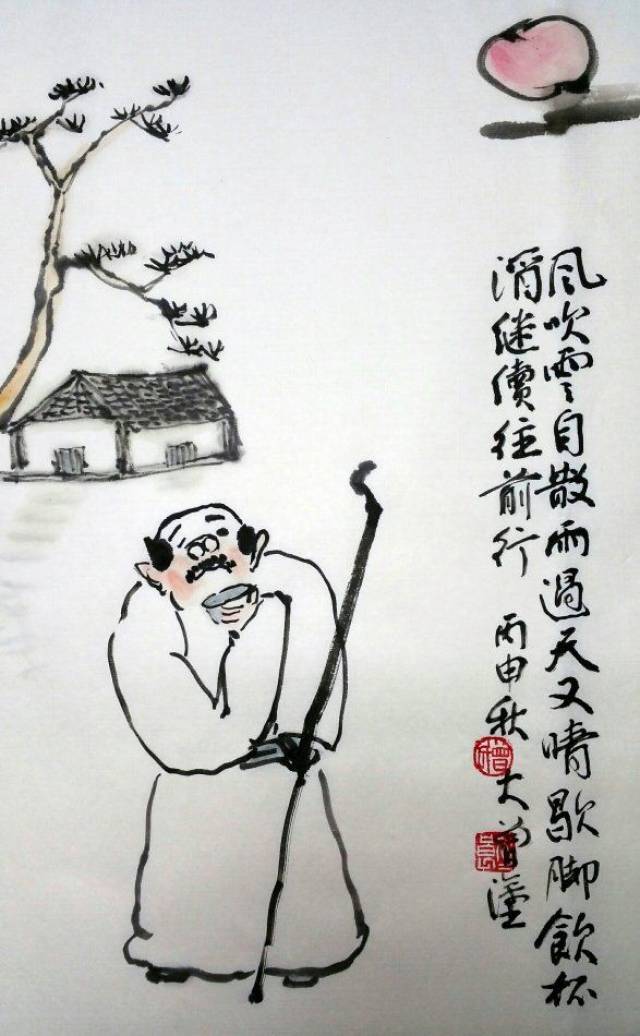 风吹雲自散雨過天又晴歇脚飲杯
酒继續往前行 丙申秋 大